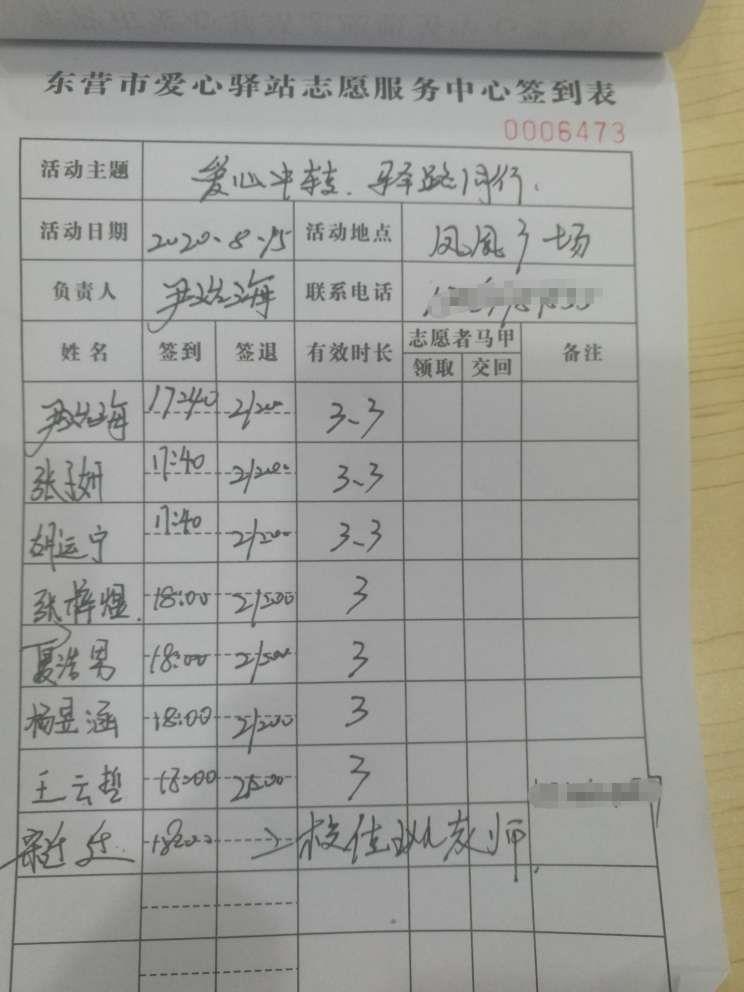 东营市爱心驿站志愿服务中心签到表
0006473
活动主题 爱心中转、驿路同行.
活动日期 2020.8.15 活动地点 凤凰广场
负责人 联系电话
姓名 签到 签退 有效时长 志愿者马甲 备注
领取 交回
17:40 21:00 3.3
张子妍 17:40 21:00 3.3
胡运宁 17:40 21:00 3.3
张梓煜. 18:00 21:00 3
夏浩男 18:00 21:00 3
杨昱涵 18:00 21:00 3
王云哲 18:00 21:00 3
18:00